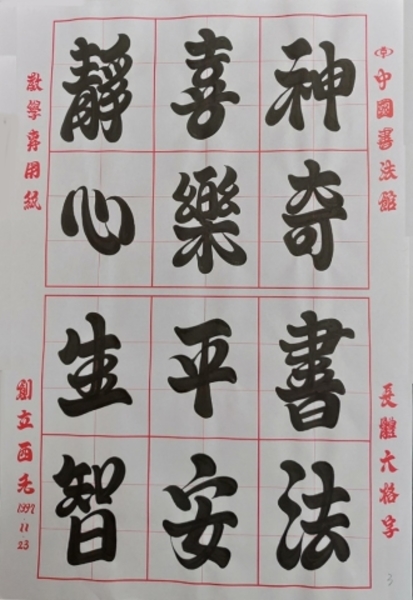 中國書法館
長體六格字
神奇書法
喜樂平安
靜心生智
教學專用紙
創立西元
1997
11
23
3